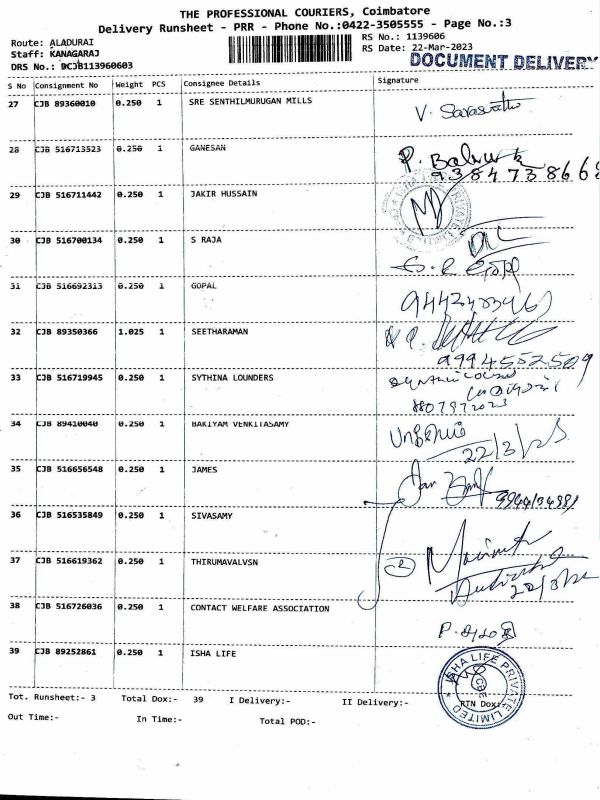 THE PROFESSIONAL COURIERS, Coimbatore
Delivery Runsheet - PRR - Phone No.:0422-3505555 - Page No.:3
Route: ALADURAI
RS No.: 1139606
Staff: KANAGARAJ
RS Date: 22-Mar-2023
DRS No.: DCJB113960603
DOCUMENT DELIVERY
S No Consignment No Weight PCS Consignee Details Signature
27 CJB 89360010 0.250 1 SRE SENTHILMURUGAN MILLS V. Saraswathi
28 CJB 516713523 0.250 1 GANESAN
9384738668
29 CJB 516711442 0.250 1 JAKIR HUSSAIN
30 CJB 516700134 0.250 1 S RAJA
31 CJB 516692313 0.250 1 GOPAL
32 CJB 89350366 1.025 1 SEETHARAMAN
9994552509
33 CJB 516719945 0.250 1 SYTHINA LOUNDERS
34 CJB 89410040 0.250 1 BAKIYAM VENKITASAMY
22/3/23
35 CJB 516656548 0.250 1 JAMES
36 CJB 516535849 0.250 1 SIVASAMY
37 CJB 516619362 0.250 1 THIRUMAVALVSN
38 CJB 516726036 0.250 1 CONTACT WELFARE ASSOCIATION
39 CJB 89252861 0.250 1 ISHA LIFE
ISHA LIFE PRIVATE LIMITED
CBE
Tot. Runsheet:- 3 Total Dox:- 39 I Delivery:- II Delivery:- RTN Dox:-
Out Time:- In Time:- Total POD:-